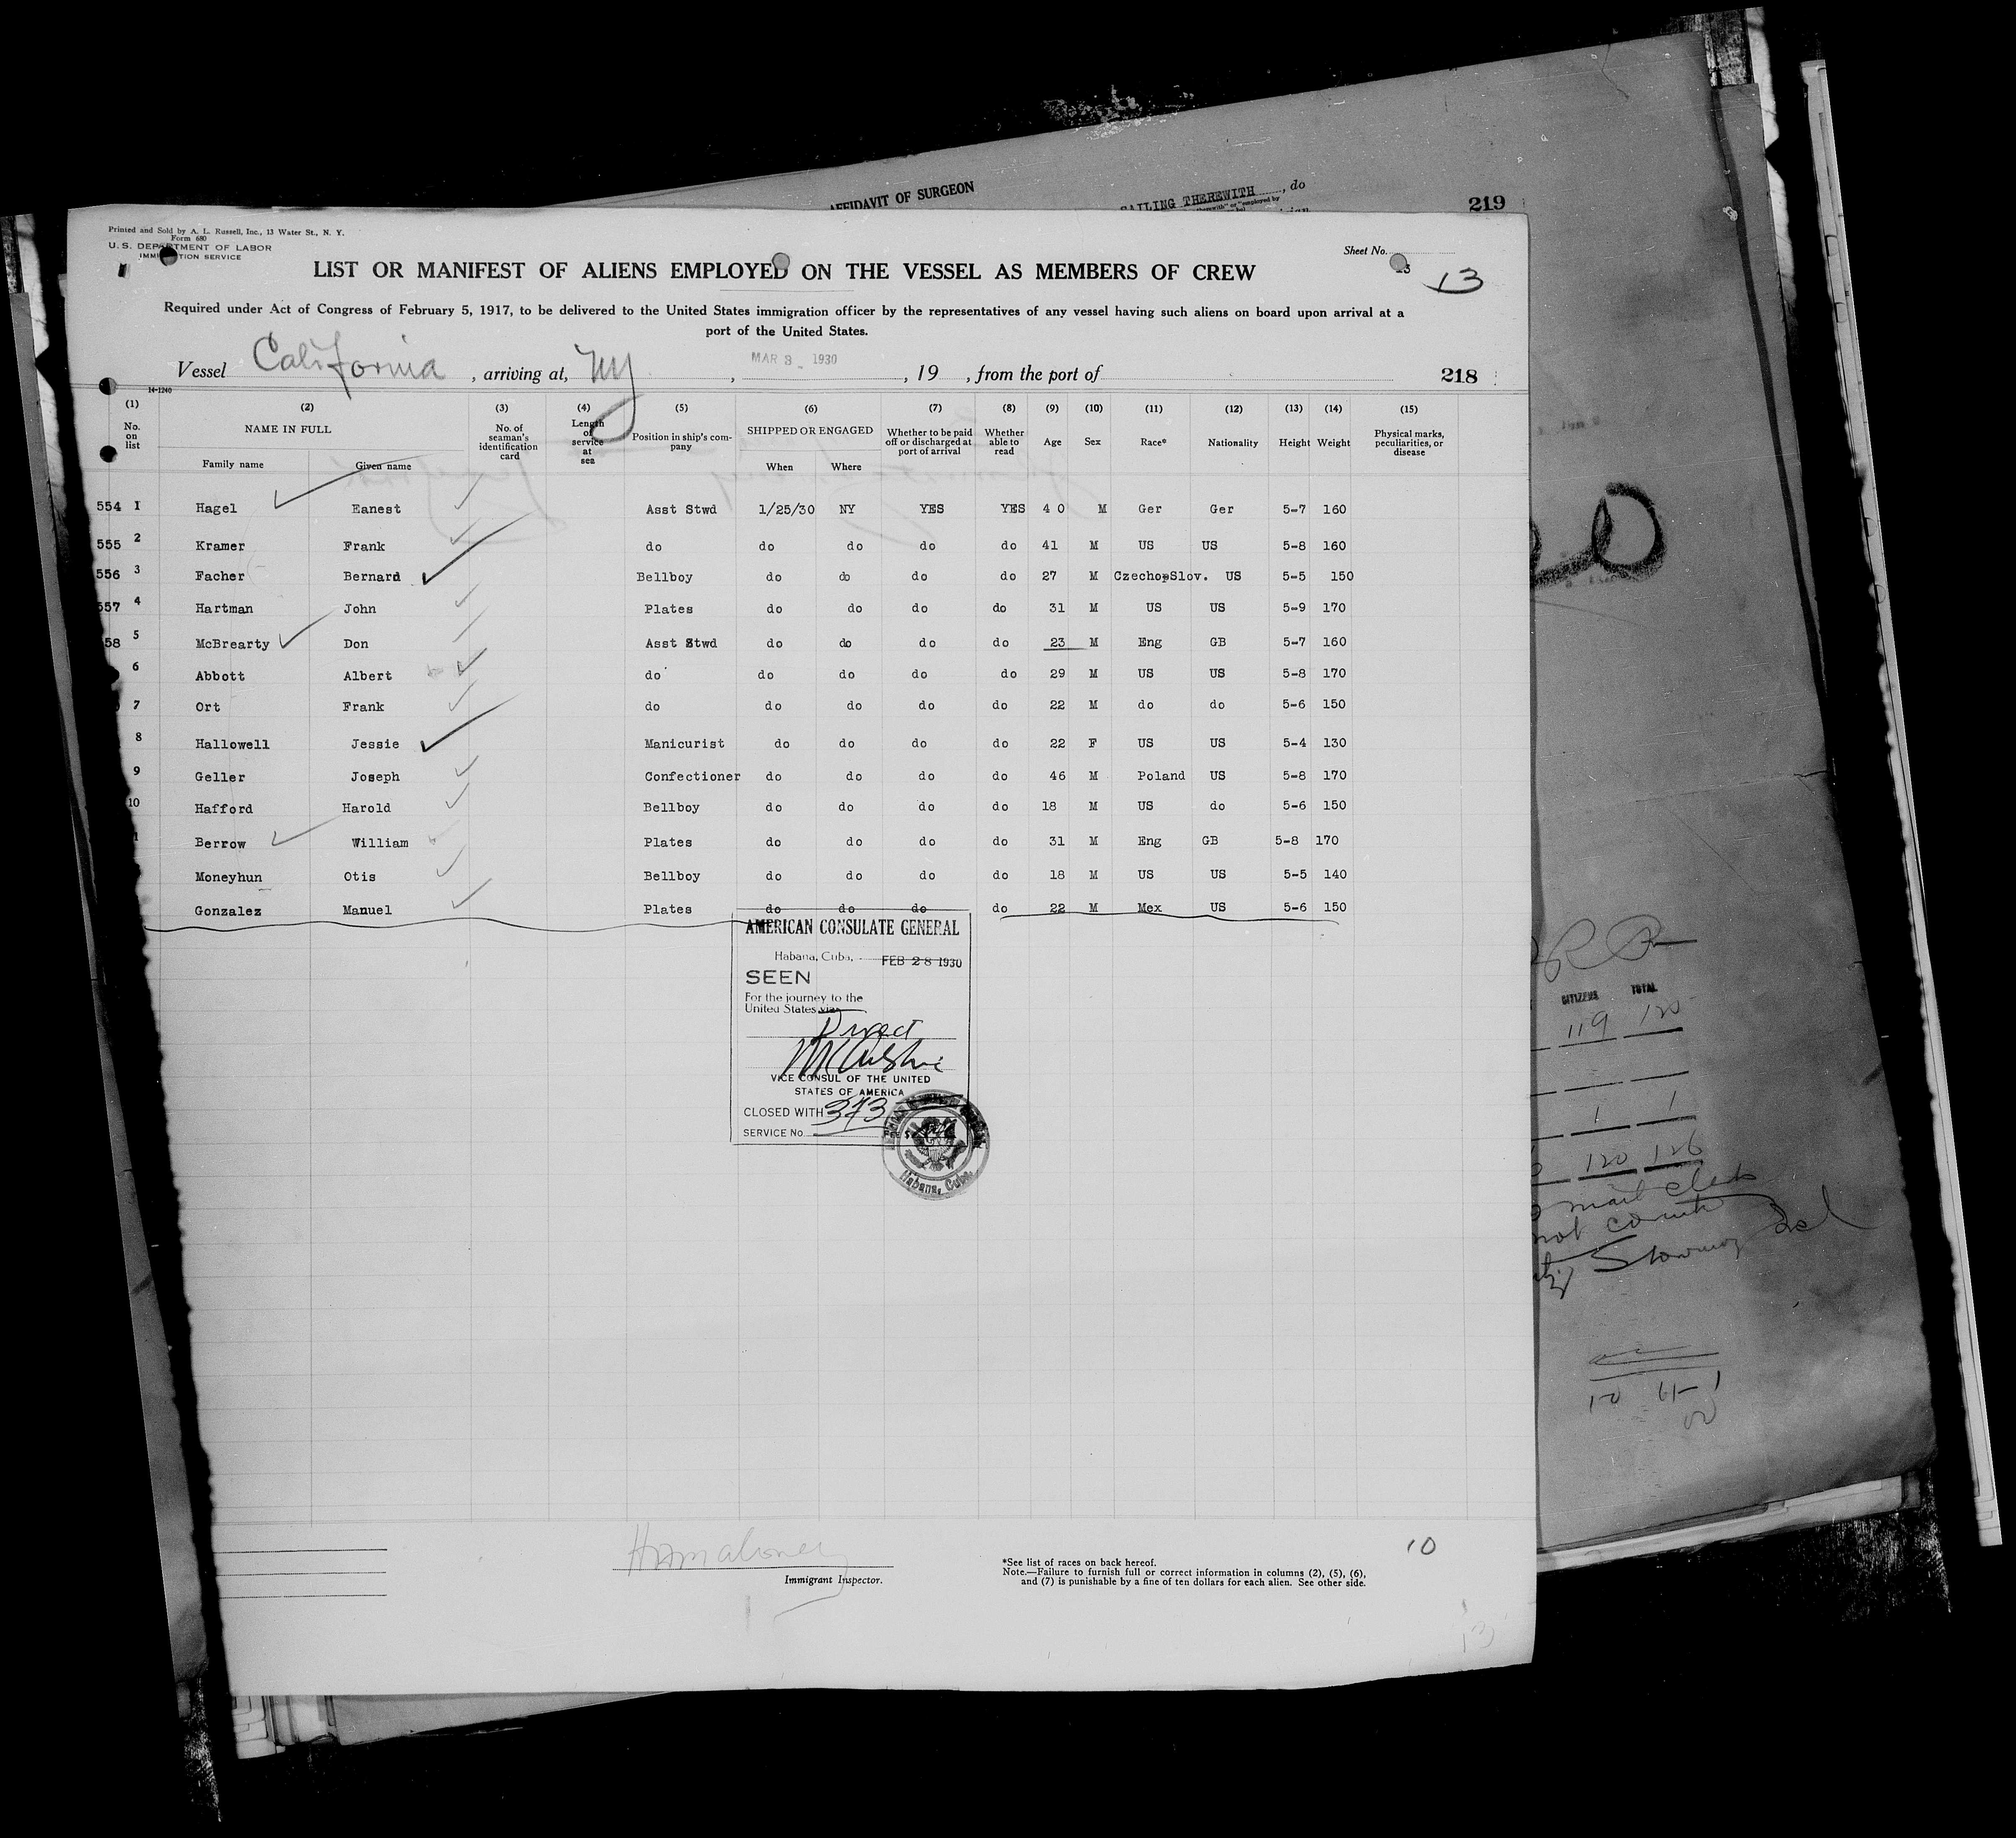 AFFIDAVIT OF SURGEON
SAILING THEREWITH, do
219
Printed and Sold by A. L. Russell, Inc., 13 Water St., N. Y.
Form 680
U. S. DEPARTMENT OF LABOR
IMMIGRATION SERVICE
Sheet No.
13
LIST OR MANIFEST OF ALIENS EMPLOYED ON THE VESSEL AS MEMBERS OF CREW
Required under Act of Congress of February 5, 1917, to be delivered to the United States immigration officer by the representatives of any vessel having such aliens on board upon arrival at a
port of the United States.
Vessel California, arriving at, NY, MAR 3 - 1930, 19 , from the port of
218
14-1240
(1) (2) (3) (4) (5) (6) (7) (8) (9) (10) (11) (12) (13) (14) (15)
No. on list NAME IN FULL No. of seaman's identification card Length of service at sea Position in ship's company SHIPPED OR ENGAGED Whether to be paid off or discharged at port of arrival Whether able to read Age Sex Race* Nationality Height Weight Physical marks, peculiarities, or disease
Family name Given name When Where
554 1 Hagel Eanest Asst Stwd 1/25/30 NY YES YES 4 0 M Ger Ger 5-7 160
555 2 Kramer Frank do do do do do 41 M US US 5-8 160
556 3 Facher Bernard Bellboy do do do do 27 M CzechopSlov. US 5-5 150
557 4 Hartman John Plates do do do do 31 M US US 5-9 170
58 5 McBrearty Don Asst Stwd do do do do 23 M Eng GB 5-7 160
6 Abbott Albert do do do do do 29 M US US 5-8 170
7 Ort Frank do do do do do 22 M do do 5-6 150
8 Hallowell Jessie Manicurist do do do do 22 F US US 5-4 130
9 Geller Joseph Confectioner do do do do 46 M Poland US 5-8 170
10 Hafford Harold Bellboy do do do do 18 M US do 5-6 150
1 Berrow William Plates do do do do 31 M Eng GB 5-8 170
Moneyhun Otis Bellboy do do do do 18 M US US 5-5 140
Gonzalez Manuel Plates do do do do 22 M Mex US 5-6 150
AMERICAN CONSULATE GENERAL
Habana, Cuba, FEB 28 1930
SEEN
For the journey to the
United States via
Direct
VICE CONSUL OF THE UNITED
STATES OF AMERICA
CLOSED WITH 373
SERVICE No.
Habana, Cuba
CITIZENS TOTAL
119 120
1 1
120 126
mail clerk
not count
10
Immigrant Inspector.
*See list of races on back hereof.
Note.—Failure to furnish full or correct information in columns (2), (5), (6),
and (7) is punishable by a fine of ten dollars for each alien. See other side.
13